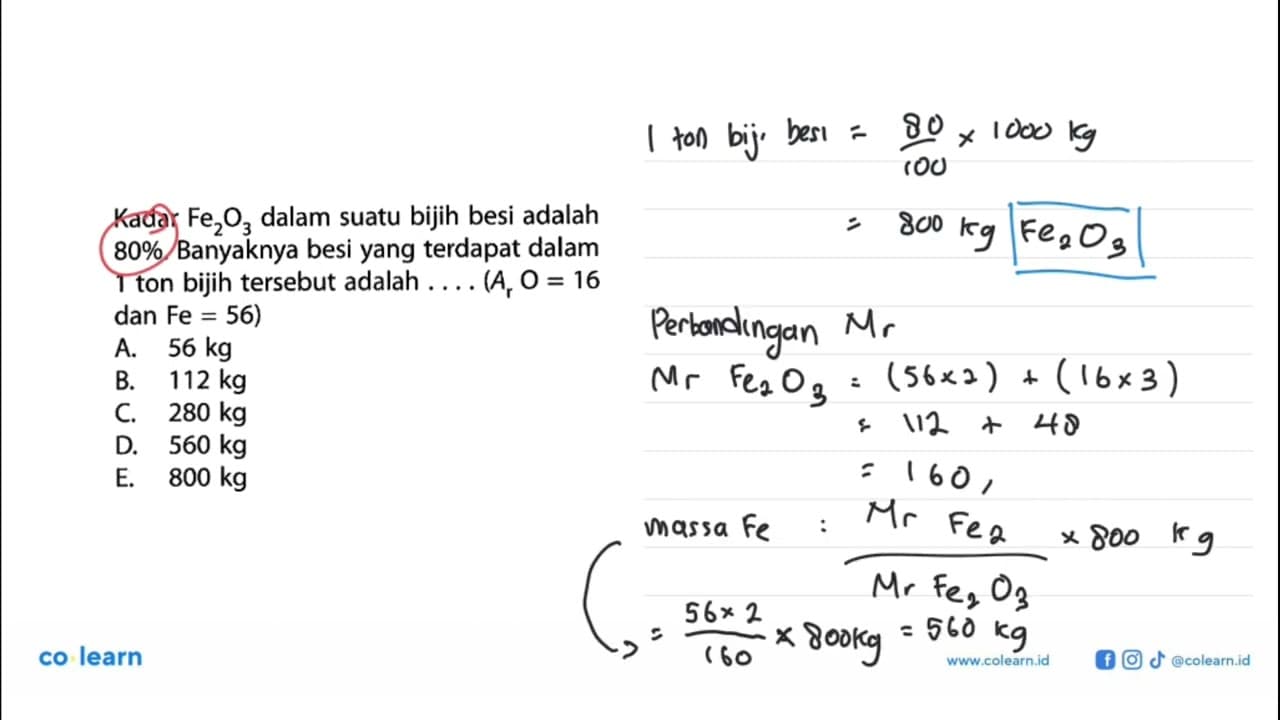 Kadar Fe₂O₃ dalam suatu bijih besi adalah
80%. Banyaknya besi yang terdapat dalam
1 ton bijih tersebut adalah . . . . (Aᵣ O = 16
dan Fe = 56)
A. 56 kg
B. 112 kg
C. 280 kg
D. 560 kg
E. 800 kg
1 ton bij. besi = 80/100 × 1000 kg
= 800 kg Fe₂O₃
Perbandingan Mr
Mr Fe₂O₃ = (56×2) + (16×3)
= 112 + 48
= 160,
massa Fe : Mr Fe₂ / Mr Fe₂O₃ × 800 kg
= 56×2/160 × 800kg = 560 kg
co learn
www.colearn.id
@colearn.id